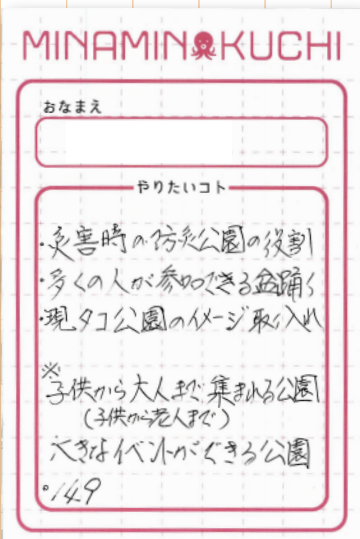 MINAMINOKUCHI
おなまえ
やりたいコト
・災害時の防災公園の役割
・多くの人が参加できる盆踊り
・現タコ公園のイメージ取り入れ
※
子供から大人まで集まれる公園
(子供から老人まで)
大きなイベントができる公園
°149